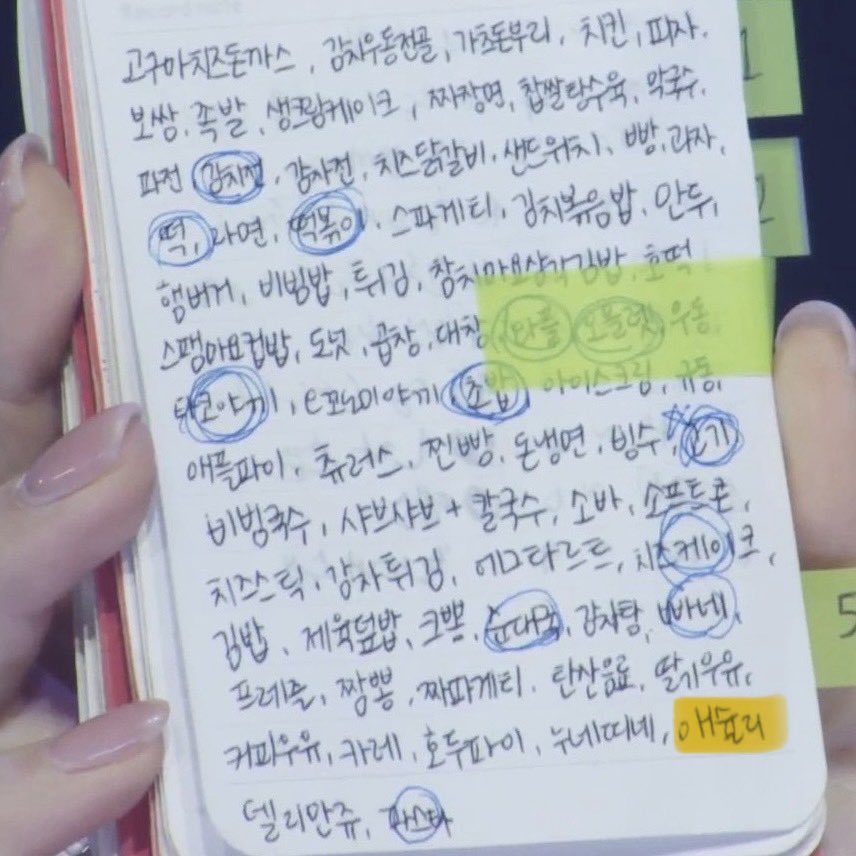 Record note
고구마치즈돈까스, 김치우동전골, 가츠돈부리, 치킨, 피자.
보쌈, 족발, 생크림케이크, 짜장면, 찹쌀탕수육, 막국수.
파전, 김치전, 감자전, 치즈닭갈비, 샌드위치, 빵, 과자,
떡, 라면, 떡볶이, 스파게티, 김치볶음밥, 만두,
햄버거, 비빔밥, 튀김, 참치마요삼각김밥, 호떡
스팸마요컵밥, 도넛, 곱창, 대창, 와플, 오믈렛, 우동,
타코야끼, 오꼬노미야끼, 초밥, 아이스크림, 규동,
애플파이, 츄러스, 찐빵, 돈냉면, 빙수, 고기
비빔국수, 샤브샤브 + 칼국수, 소바, 소프트콘,
치즈스틱, 감자튀김, 에그타르트, 치즈케이크,
김밥, 제육덮밥, 크뽕, 순대국, 감자탕, 빠네,
프레즐, 짬뽕, 짜파게티, 탄산음료, 딸기우유,
커피우유, 카레, 호두파이, 누네띠네, 애슐리
델리만쥬, 파스타
1
2
5